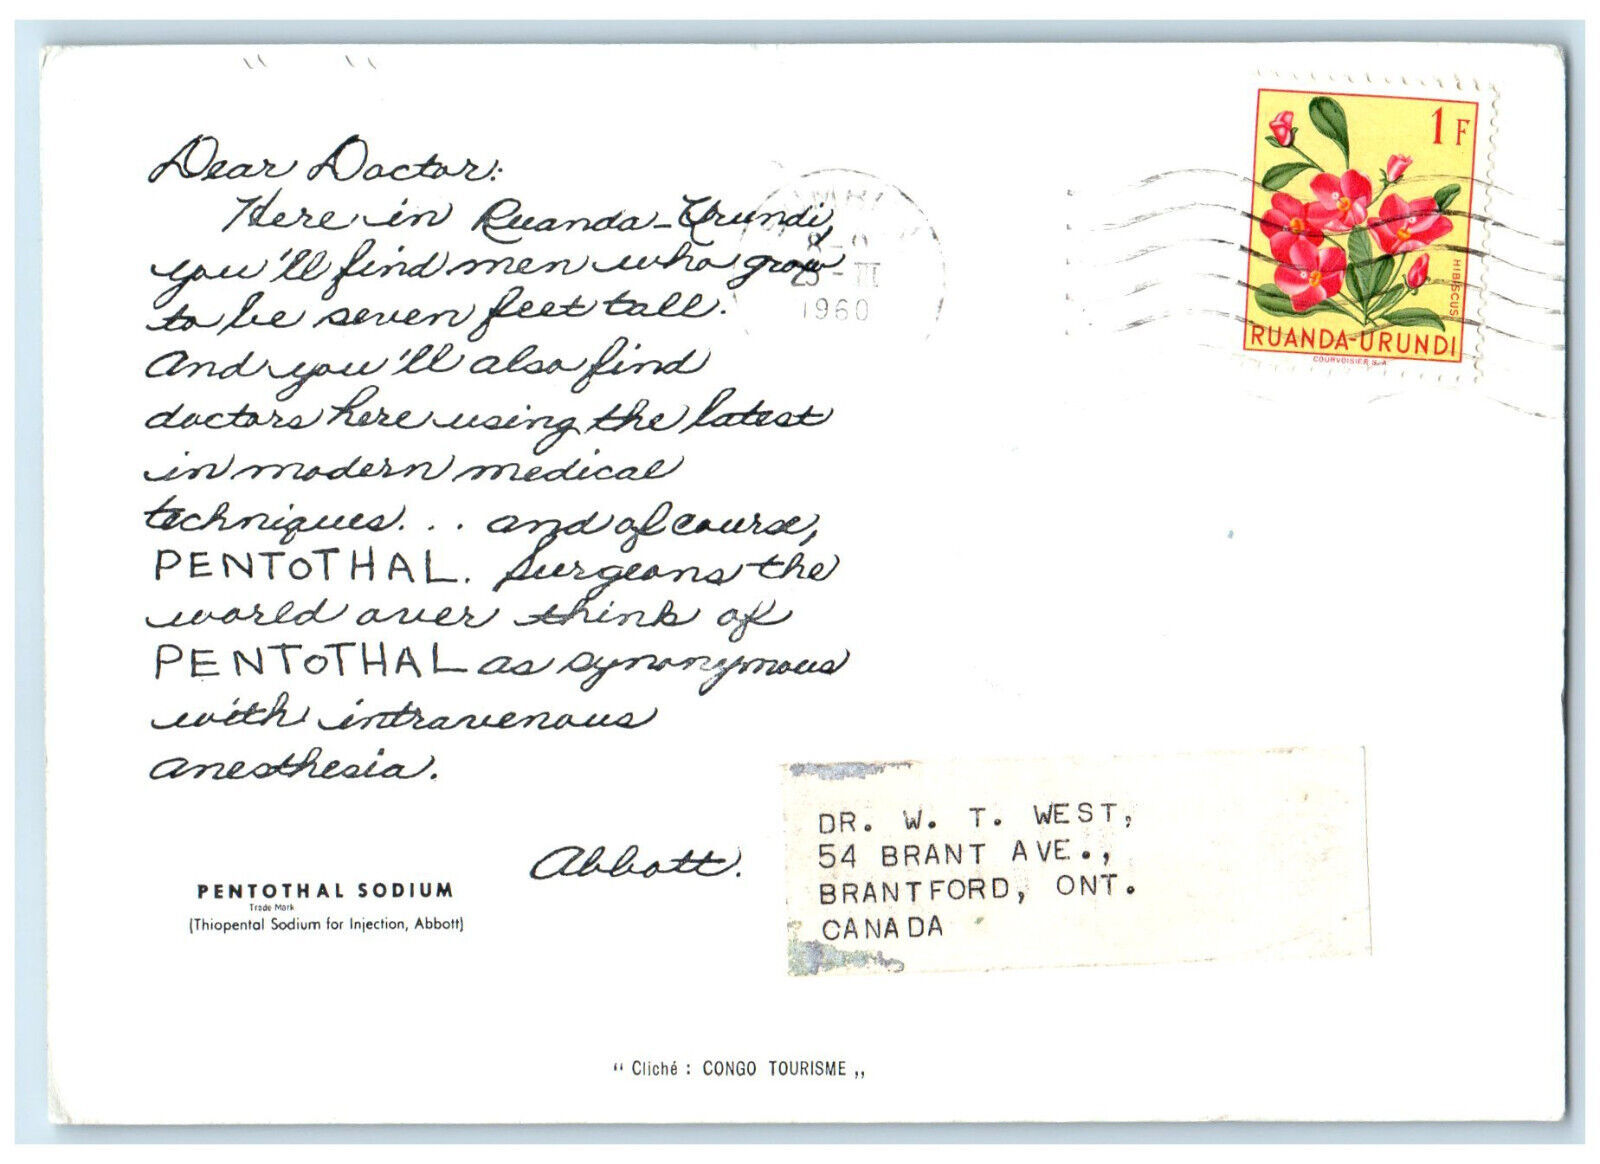 Dear Doctor:
Here in Ruanda-Urundi,
you'll find men who grow
to be seven feet tall.
And you'll also find
doctors here using the latest
in modern medical
techniques... and of course,
PENTOTHAL. Surgeons the
world over think of
PENTOTHAL as synonymous
with intravenous
anesthesia.
Abbott.
PENTOTHAL SODIUM
Trade Mark
(Thiopental Sodium for Injection, Abbott)
8-9
1960
1 F
HIBISCUS
RUANDA-URUNDI
COURVOISIER S.A.
DR. W. T. WEST,
54 BRANT AVE.,
BRANTFORD, ONT.
CANADA
“ Cliché : CONGO TOURISME „